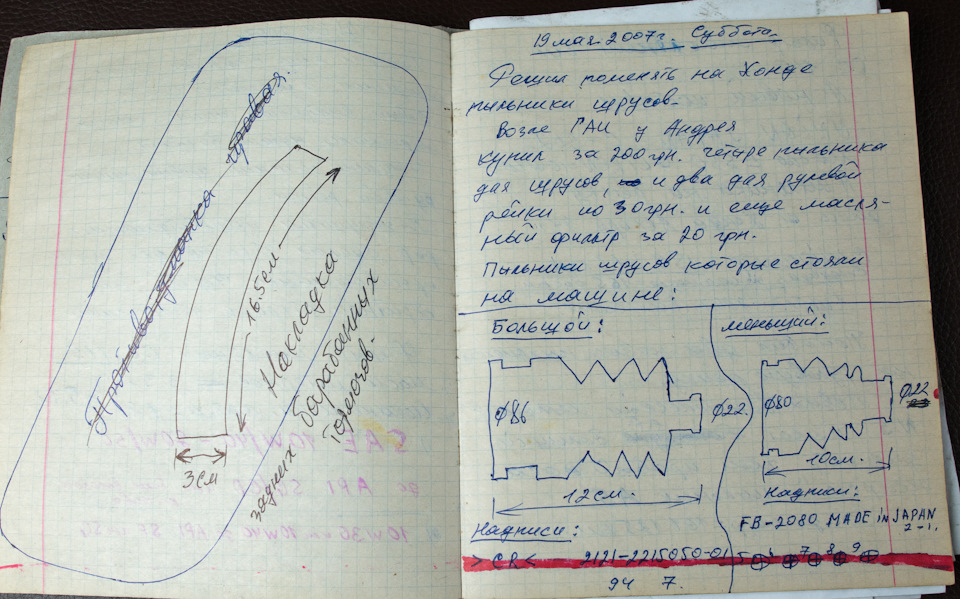 правая.
3см
16.5см
Накладка
задних барабанных
тормозов.
19 мая 2007г. Суббота.
Решил поменять на Хонде
пыльники шрусов.
Возле ГАИ у Андрея
купил за 200 грн. четыре пыльника
для шрусов, и два для рулевой
рейки по 30 грн. и еще масля-
ный фильтр за 20 грн.
Пыльники шрусов которые стояли
на машине:
Большой:
Ф86
Ф22.
12см.
Надписи:
> CR < 2121-2215050-01
94 7.
меньший:
Ф80
Ф22
10см.
Надписи:
FB-2080 MADE IN JAPAN
2-1.
7 8 9